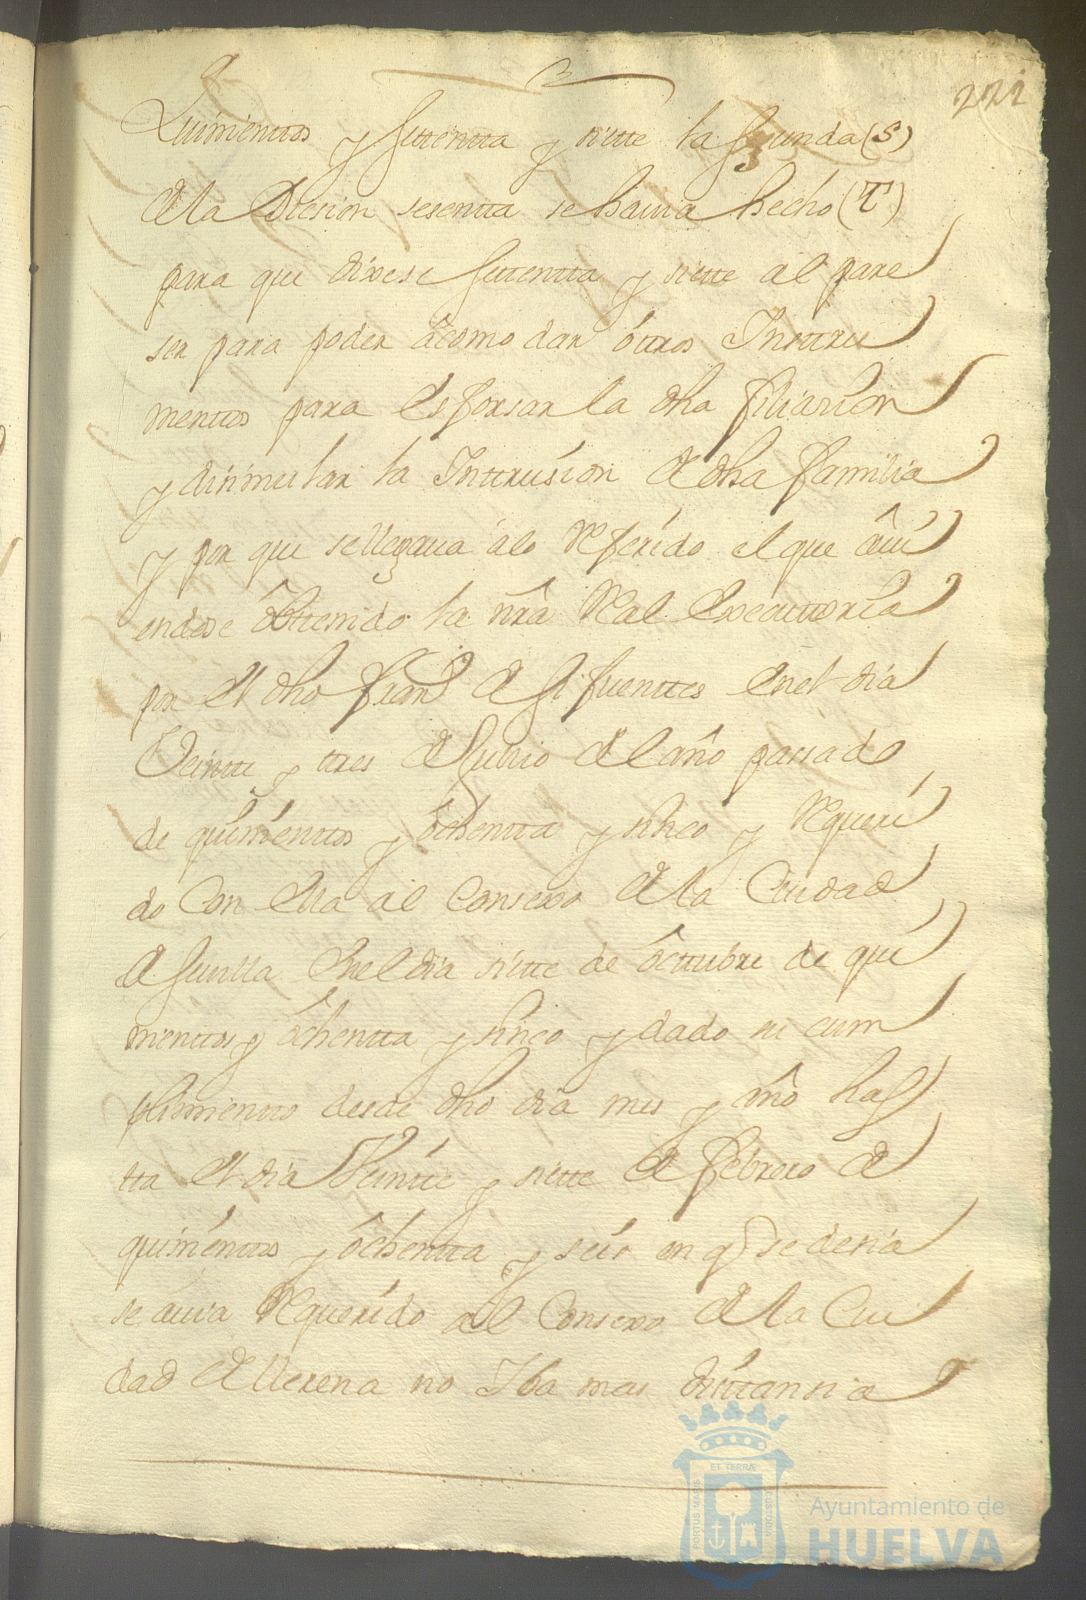 221
Quinientos y setentta y siette la segunda (S)
de la Diccion sesentta se havia hecho (T)
para que dixese settentta y siette al pare
ser para poder acomodar ôtros Instru
mentos para esforsar la dha filiasion
y disimular la Inttrusion de dha familia
y por que se llegava â lo Referido el que âvi
endose ôbttenido la nra Real Executtoria
por el dho Franco de Sifuenttes en el dia
Veintte y ttres de Junio de el año passado
de quinientos y ôchentta y sinco y Requeri
do con ella al Consexo de la Ciudad
de Sevilla en el dia siette de ôcttubre de qui
nienttos y ôchentta y sinco y dado su cum
plimiento desde dho dia mes y año has
tta el dia Veintte y siette de febrero de
quinienttos y ôchentta y seis en q se desia
se avia Requerido al Consexo de la Ciu
dad de Llerena no Iba mas disttansia
PORTUS MARIS ET TERRÆ CUSTODIA
Ayuntamiento de
HUELVA